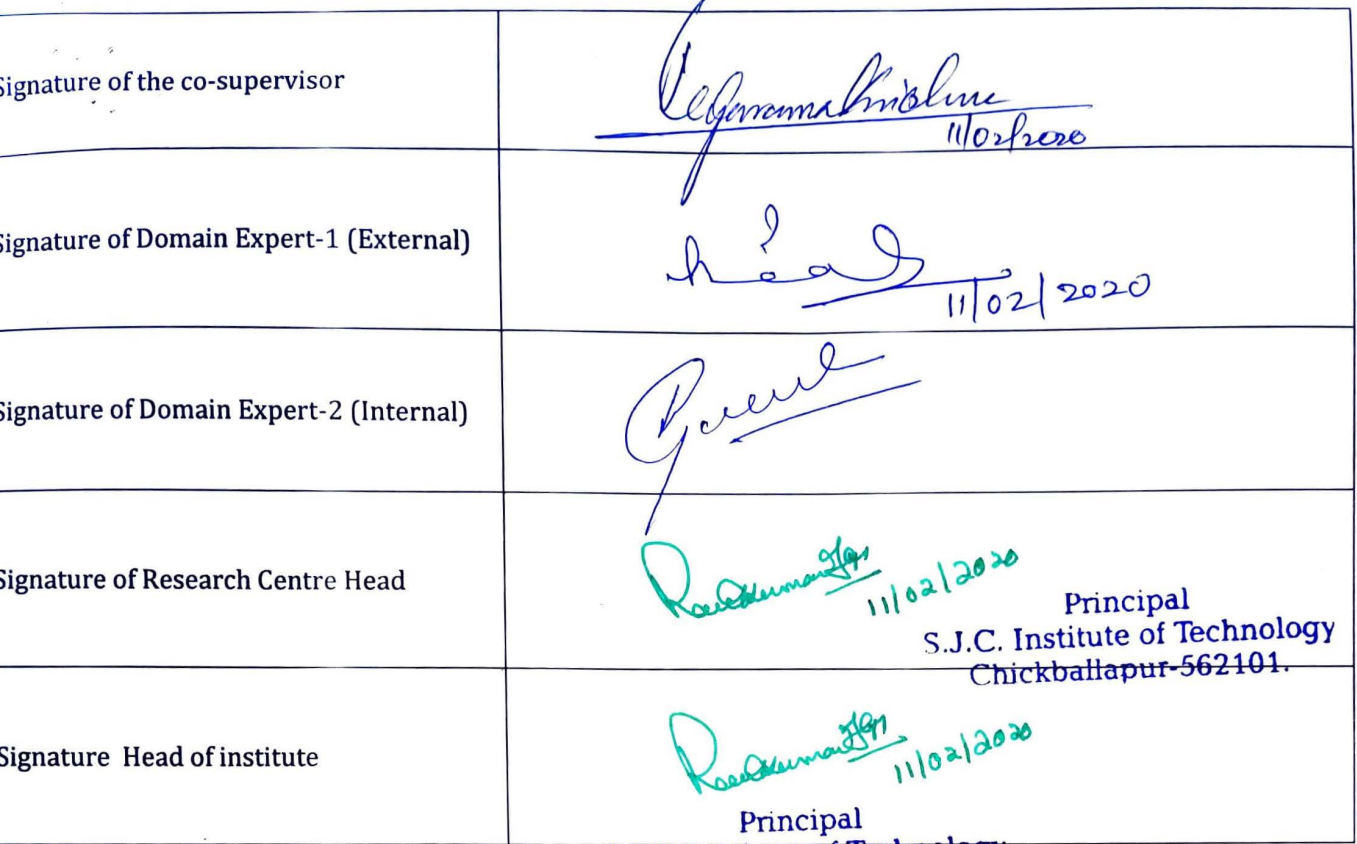 Signature of the co-supervisor
11/02/2020
Signature of Domain Expert-1 (External)
11/02/2020
Signature of Domain Expert-2 (Internal)
Signature of Research Centre Head
11/02/2020
Principal
S.J.C. Institute of Technology
Chickballapur-562101.
Signature Head of institute
11/02/2020
Principal